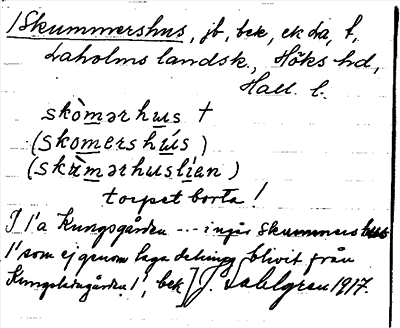 /Skummershus, jb, bek, ek da, t,
Laholms landsk., Höks hd,
Hall. l.
skòmərhus †
(skomershús)
(skùmərhuslían)
torpet borta!
I 1/a Kungsgården --- ingår Skummershus
1/ som ej genom laga delning blivit från
Kungsladugården 1/, bek] J. Sahlgren 1917.